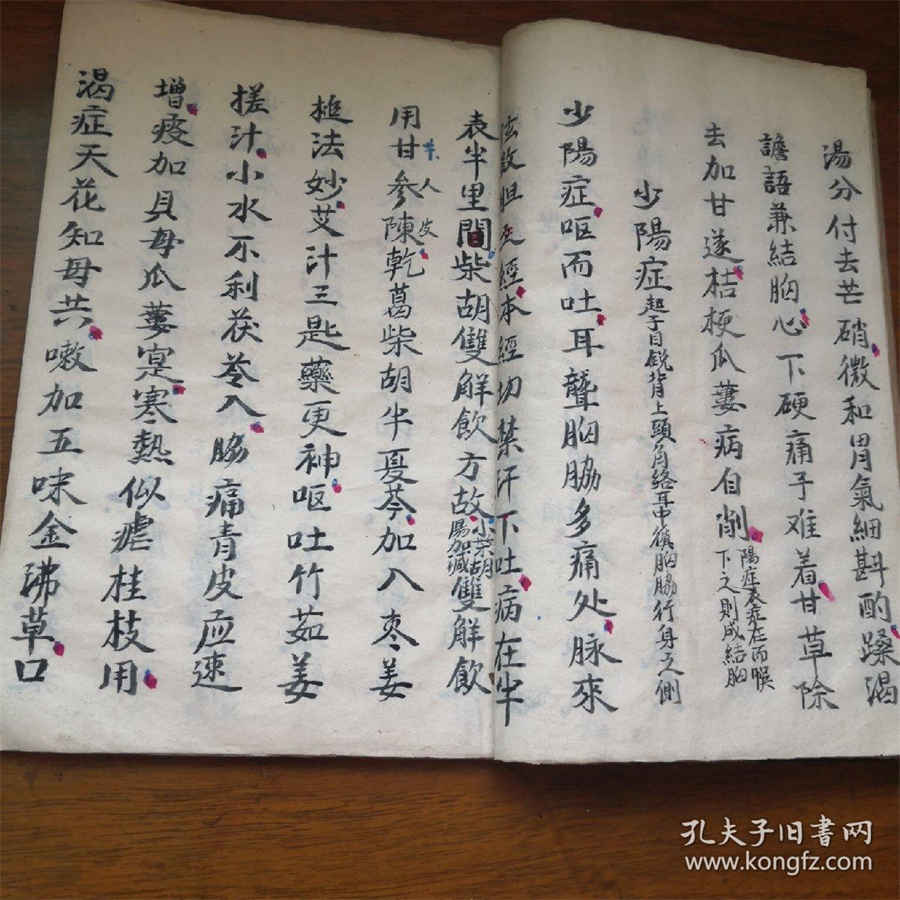 湯分付去芒硝微和胃氣細斟酌躁渴
譫語兼結胸心下硬痛手难着甘草除
去加甘遂桔梗瓜蔞病自削陽症表症在而喉下之則成結胸
少陽症起于目銳背上頭角絡耳中横胸脇行身之側
少陽症呕而吐耳聾胸脇多痛处脉來
弦数胆经本經切禁汗下吐病在半
表半里間柴胡雙解飲方故小柴胡湯加减雙解飲
用甘参陳乾葛柴胡半夏芩加入枣姜
半人皮
槌法妙艾汁三匙藥更神呕吐竹茹姜
搓汁小水不利茯苓入脇痛青皮应速
增痰加貝母瓜蔞寔寒熱似瘧桂枝用
渴症天花知母共嗽加五味金沸草口
孔夫子旧書网
www.kongfz.com